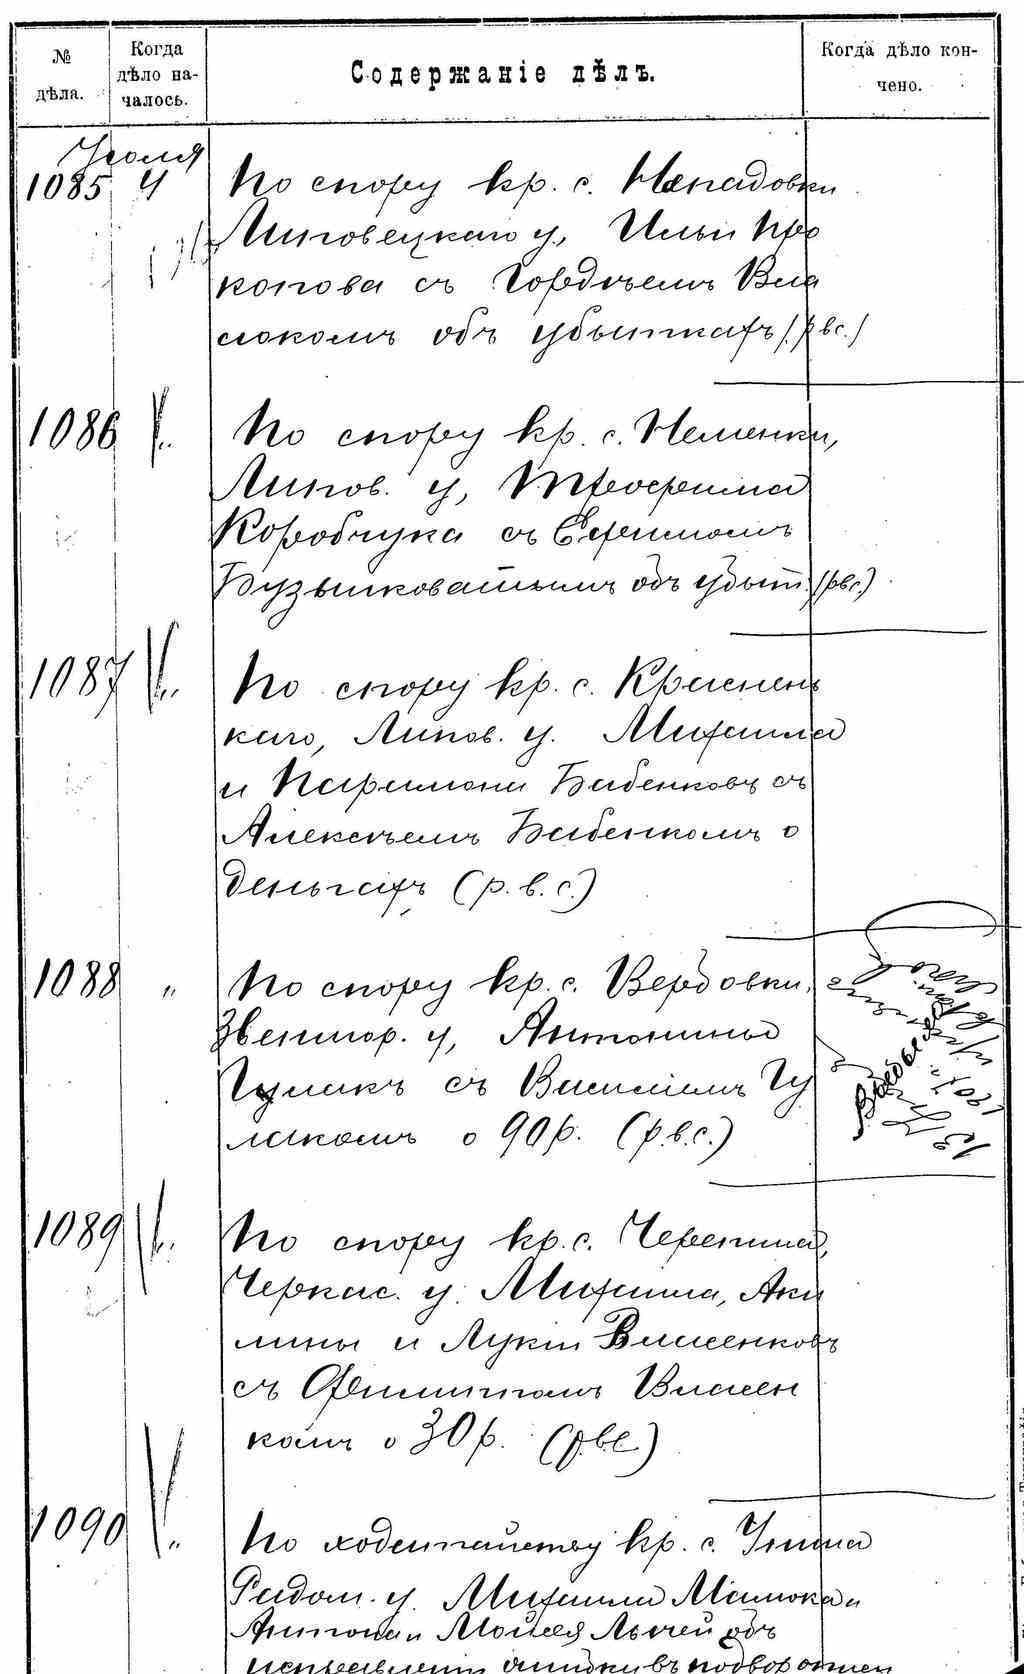 № дѣла.
Когда дѣло на-
чалось.
Содержаніе дѣлъ.
Когда дѣло кон-
чено.
Іюля
1085 4 По спору кр. с. Ненадовки
Липовецкаго у, Ильи Про
копова съ Гордѣемъ Вла
сюкомъ объ убыткахъ (рвс.)
1086 „ По спору кр. с. Неменки,
Липов. у, Трофима
Коробчука съ Ефимомъ
Бузыковатымъ объ убыт. (рвс.)
1087 „ По спору кр. с. Краснень
каго, Липов. у. Михаила
и Парамона Бабенковъ съ
Алексѣемъ Бабенкомъ о
деньгахъ (р.в.с.)
1088 „ По спору кр. с. Вербовки,
Звенигор. у, Антонины
Гулакъ съ Василіемъ Гу
лакомъ о 90 р. (р.в.с.)
1089 „ По спору кр. с. Черепина,
Черкас. у. Михаила, Аки
лины и Лукіи Власенковъ
съ Филиппомъ Власен
комъ о 30 р. (рвс)
1090 „ По ходатайству кр. с.
Радом. у. Михаила
Антона и Моисея объ